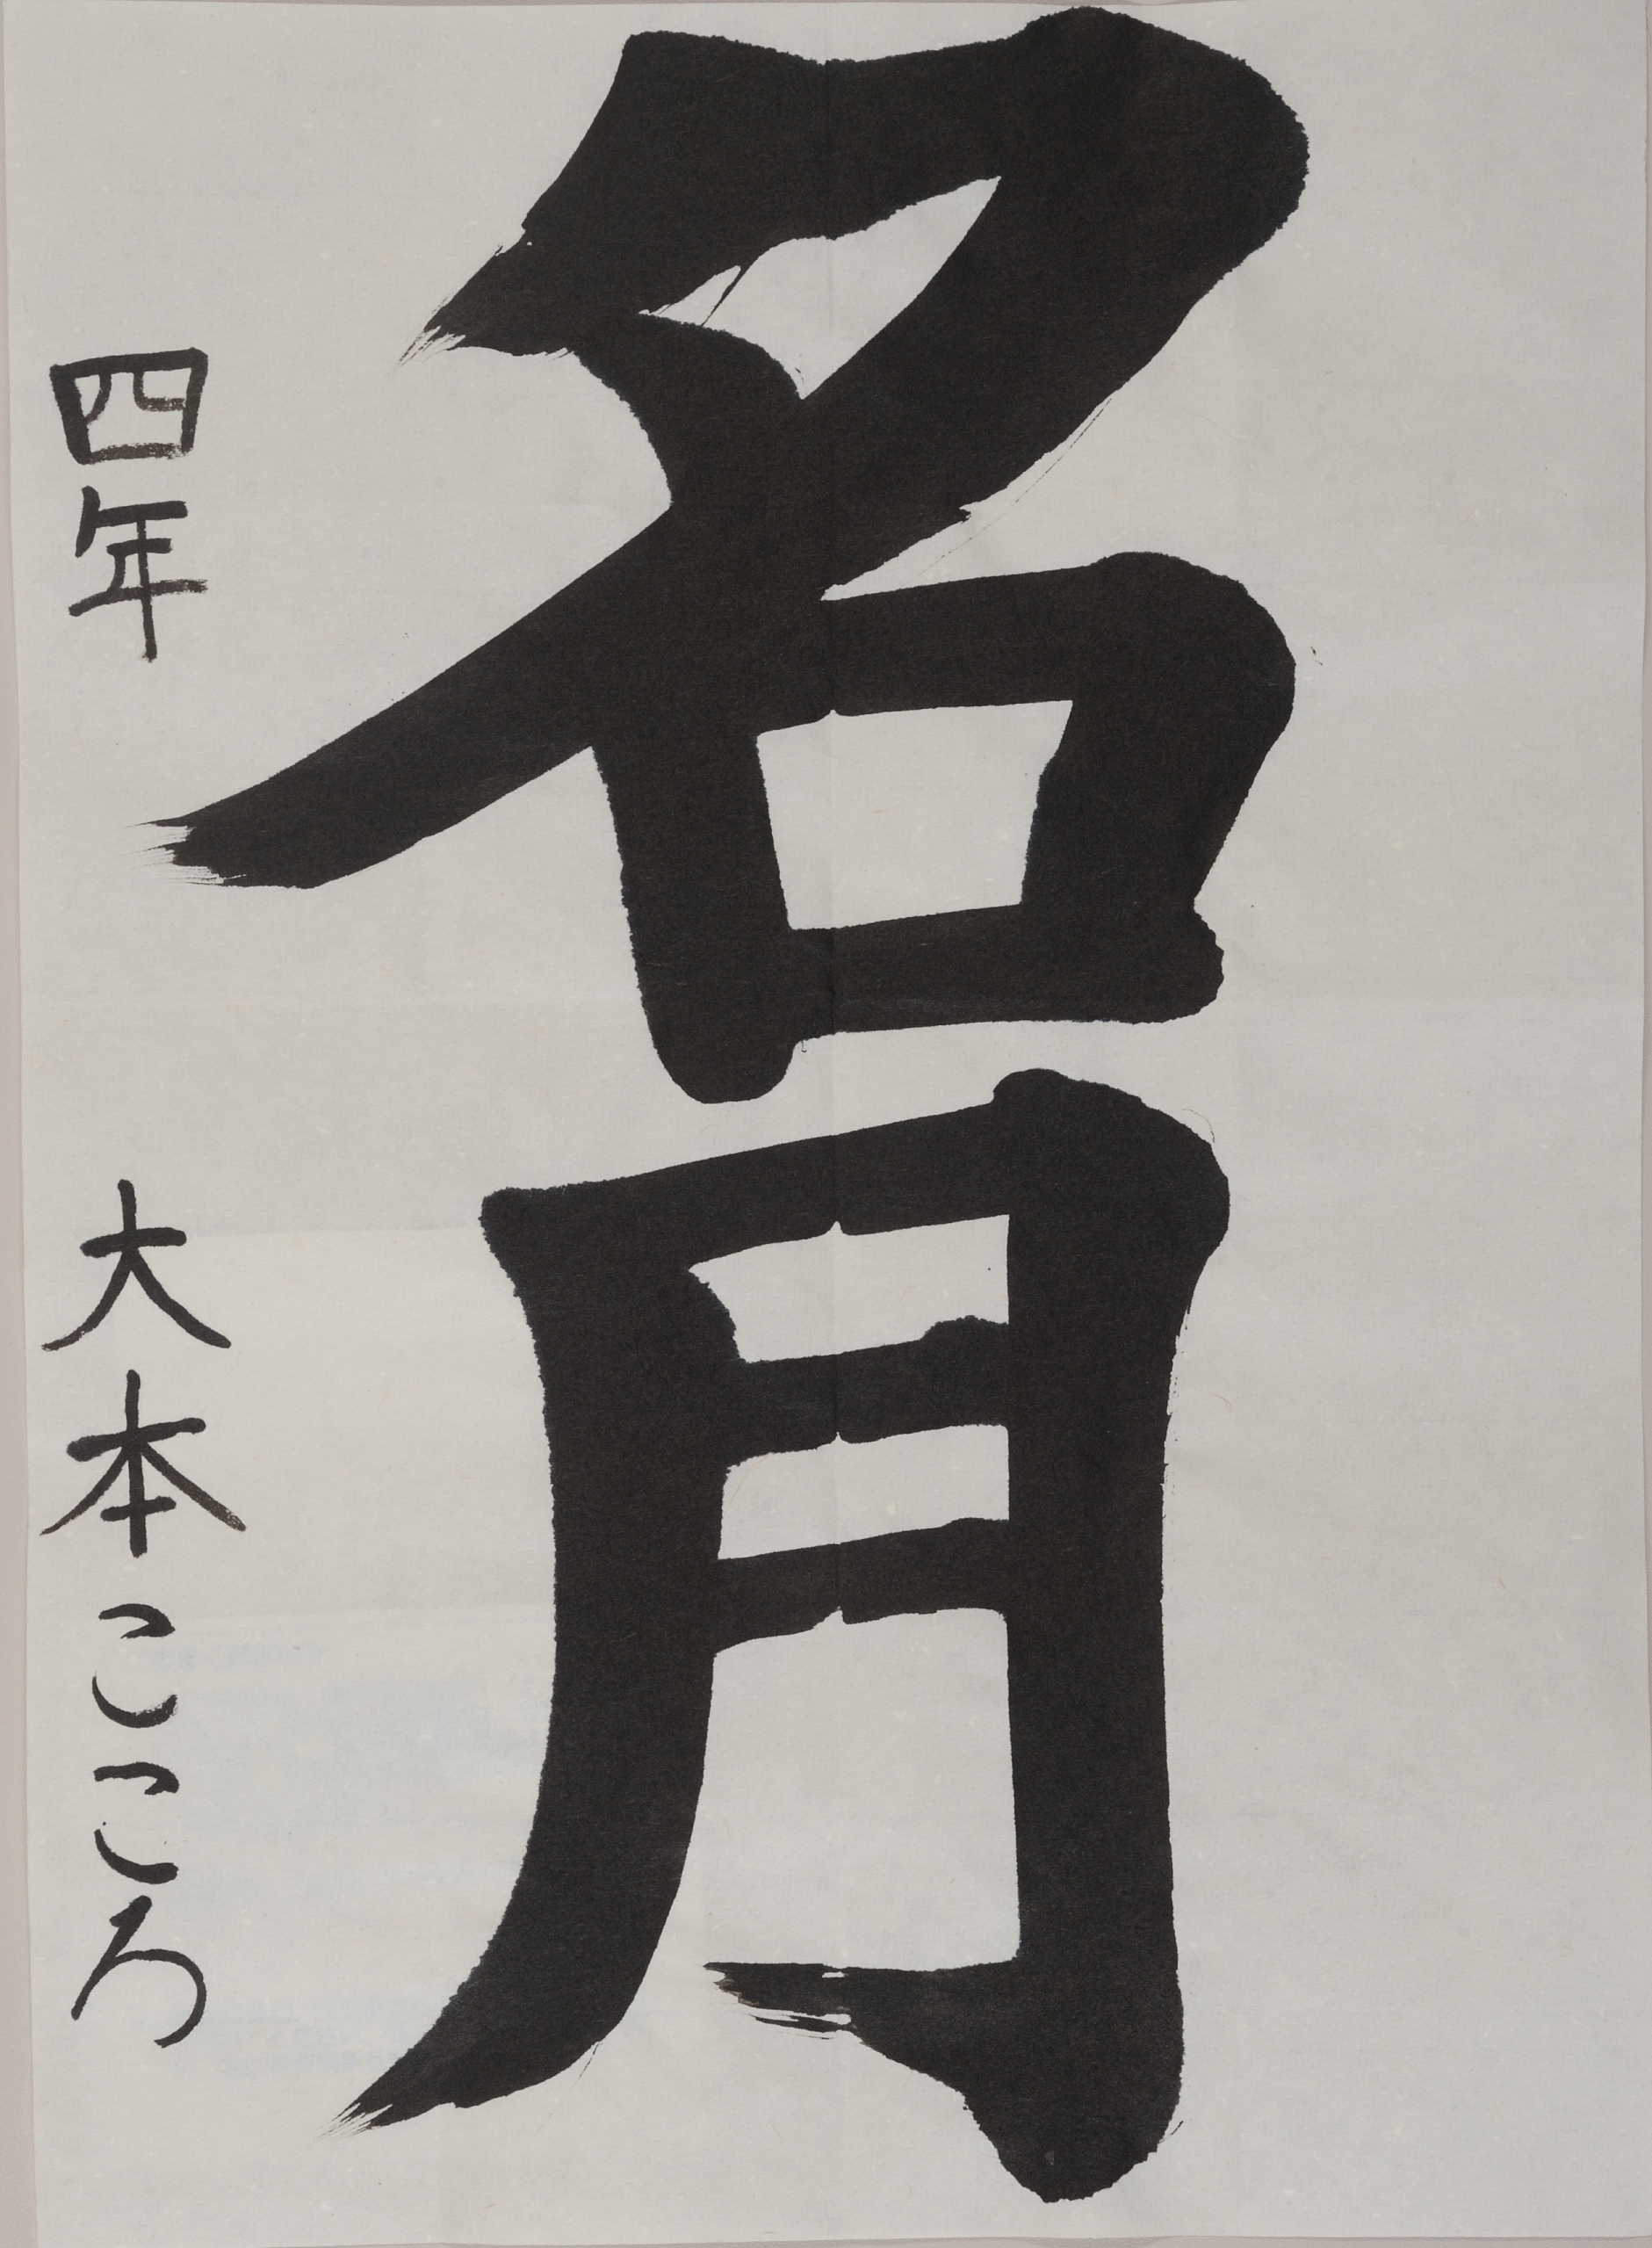 名月
四年 大本こころ